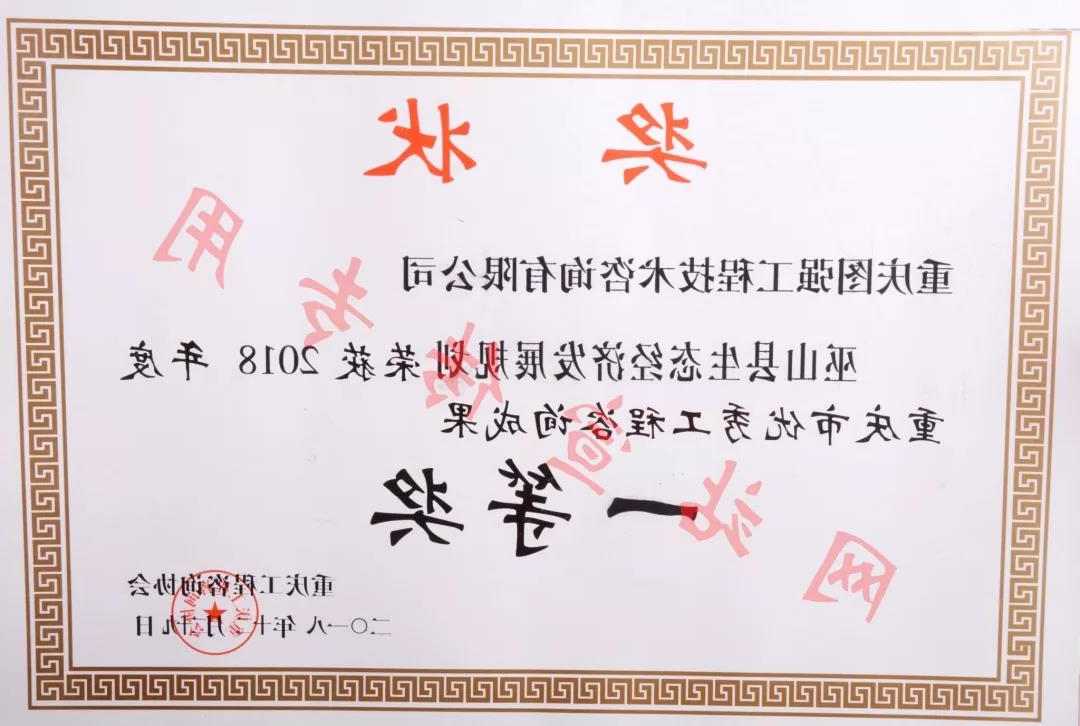 奖状
重庆图强工程技术咨询有限公司
巫山县生态经济发展规划荣获 2018 年度
重庆市优秀工程咨询成果
一等奖
重庆工程咨询协会
二〇一八年十二月十九日
网站宣传专用